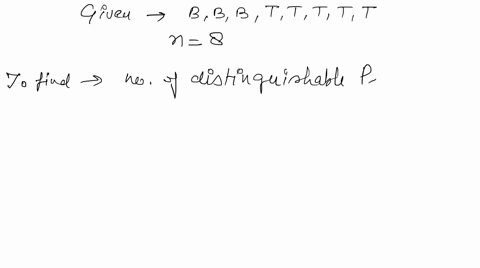 Given → B, B, B, T, T, T, T, T
n = 8
To find → no. of distinguishable P